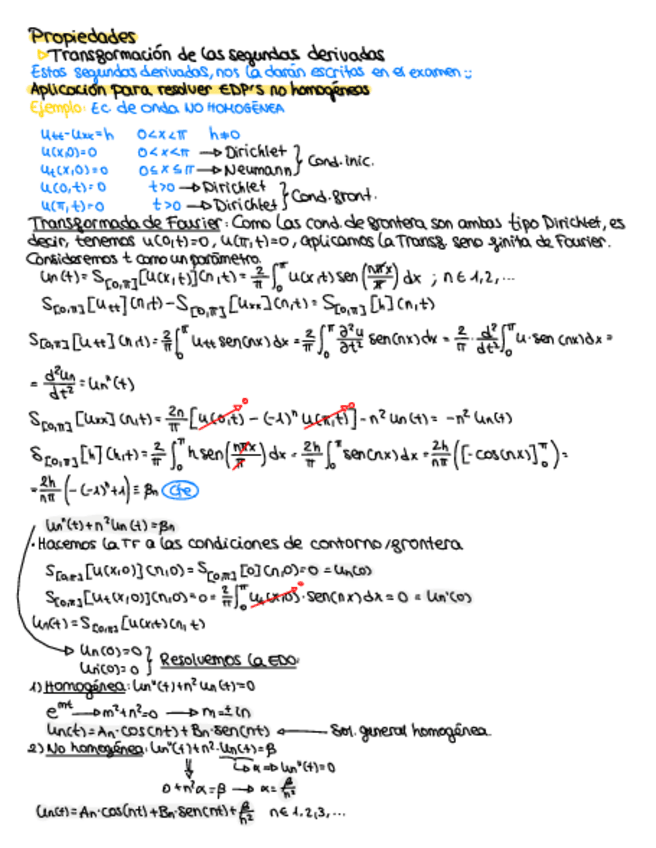 Propiedades
▷Transformación de las segundas derivadas
Estas segundas derivadas, nos la darán escritas en el examen :)
Aplicación para resolver EDP'S no homogéneas
Ejemplo: Ec. de onda NO HOMOGÉNEA
Utt-Uxx=h 0<x<π h≠0
U(x,0)=0 0<x<π → Dirichlet } Cond. inic.
Ut(x,0)=0 0≤x≤π → Neumann
U(0,t)=0 t>0 → Dirichlet } Cond. front.
U(π,t)=0 t>0 → Dirichlet
Transformada de Fourier: Como las cond. de frontera son ambas tipo Dirichlet, es
decir, tenemos u(0,t)=0, u(π,t)=0, aplicamos la Transf. seno finita de Fourier.
Consideremos t como un parámetro.
Un(t) = S[0,π][u(x,t)](n,t) = 2/π ∫₀^π u(x,t) sen(nπx/π) dx ; n∈1,2,...
S[0,π][Utt](n,t) - S[0,π][Uxx](n,t) = S[0,π][h](n,t)
S[0,π][Utt](n,t) = 2/π ∫₀^π Utt sen(nx)dx = 2/π ∫₀^π ∂²u/∂t² sen(nx)dx = 2/π · d²/dt² ∫₀^π u·sen(nx)dx =
= d²Un/dt² = Un''(t)
S[0,π][Uxx](n,t) = 2n/π [u(0,t) - (-1)ⁿ u(π,t)] - n² Un(t) = -n² Un(t)
S[0,π][h](n,t) = 2/π ∫₀^π h sen(nπx/π) dx = 2h/π ∫₀^π sen(nx)dx = 2h/nπ ([-cos(nx)]₀^π) =
= 2h/nπ (-(-1)ⁿ+1) ≡ βn Cte
Un''(t)+n²Un(t)=βn
· Hacemos la TF a las condiciones de contorno/frontera
S[0,π][u(x,0)](n,0) = S[0,π][0](n,0) = 0 = Un(0)
S[0,π][Ut(x,0)](n,0) = 0 = 2/π ∫₀^π Ut(x,0)·sen(nx)dx = 0 = Un'(0)
Un(t) = S[0,π][u(x,t)](n,t)
Un(0)=0 } Resolvemos la EDO:
Un'(0)=0
1) Homogénea: Un''(t)+n²Un(t)=0
e^mt → m²+n²=0 → m=±in
Un(t)=An·cos(nt)+Bn·sen(nt) ← Sol. general homogénea
2) No homogénea: Un''(t)+n²·Un(t)=β
↳ α ⇒ Un''(t)=0
0+n²α=β → α=β/n²
Un(t)=An·cos(nt)+Bn·sen(nt)+β/n² n∈1,2,3,...